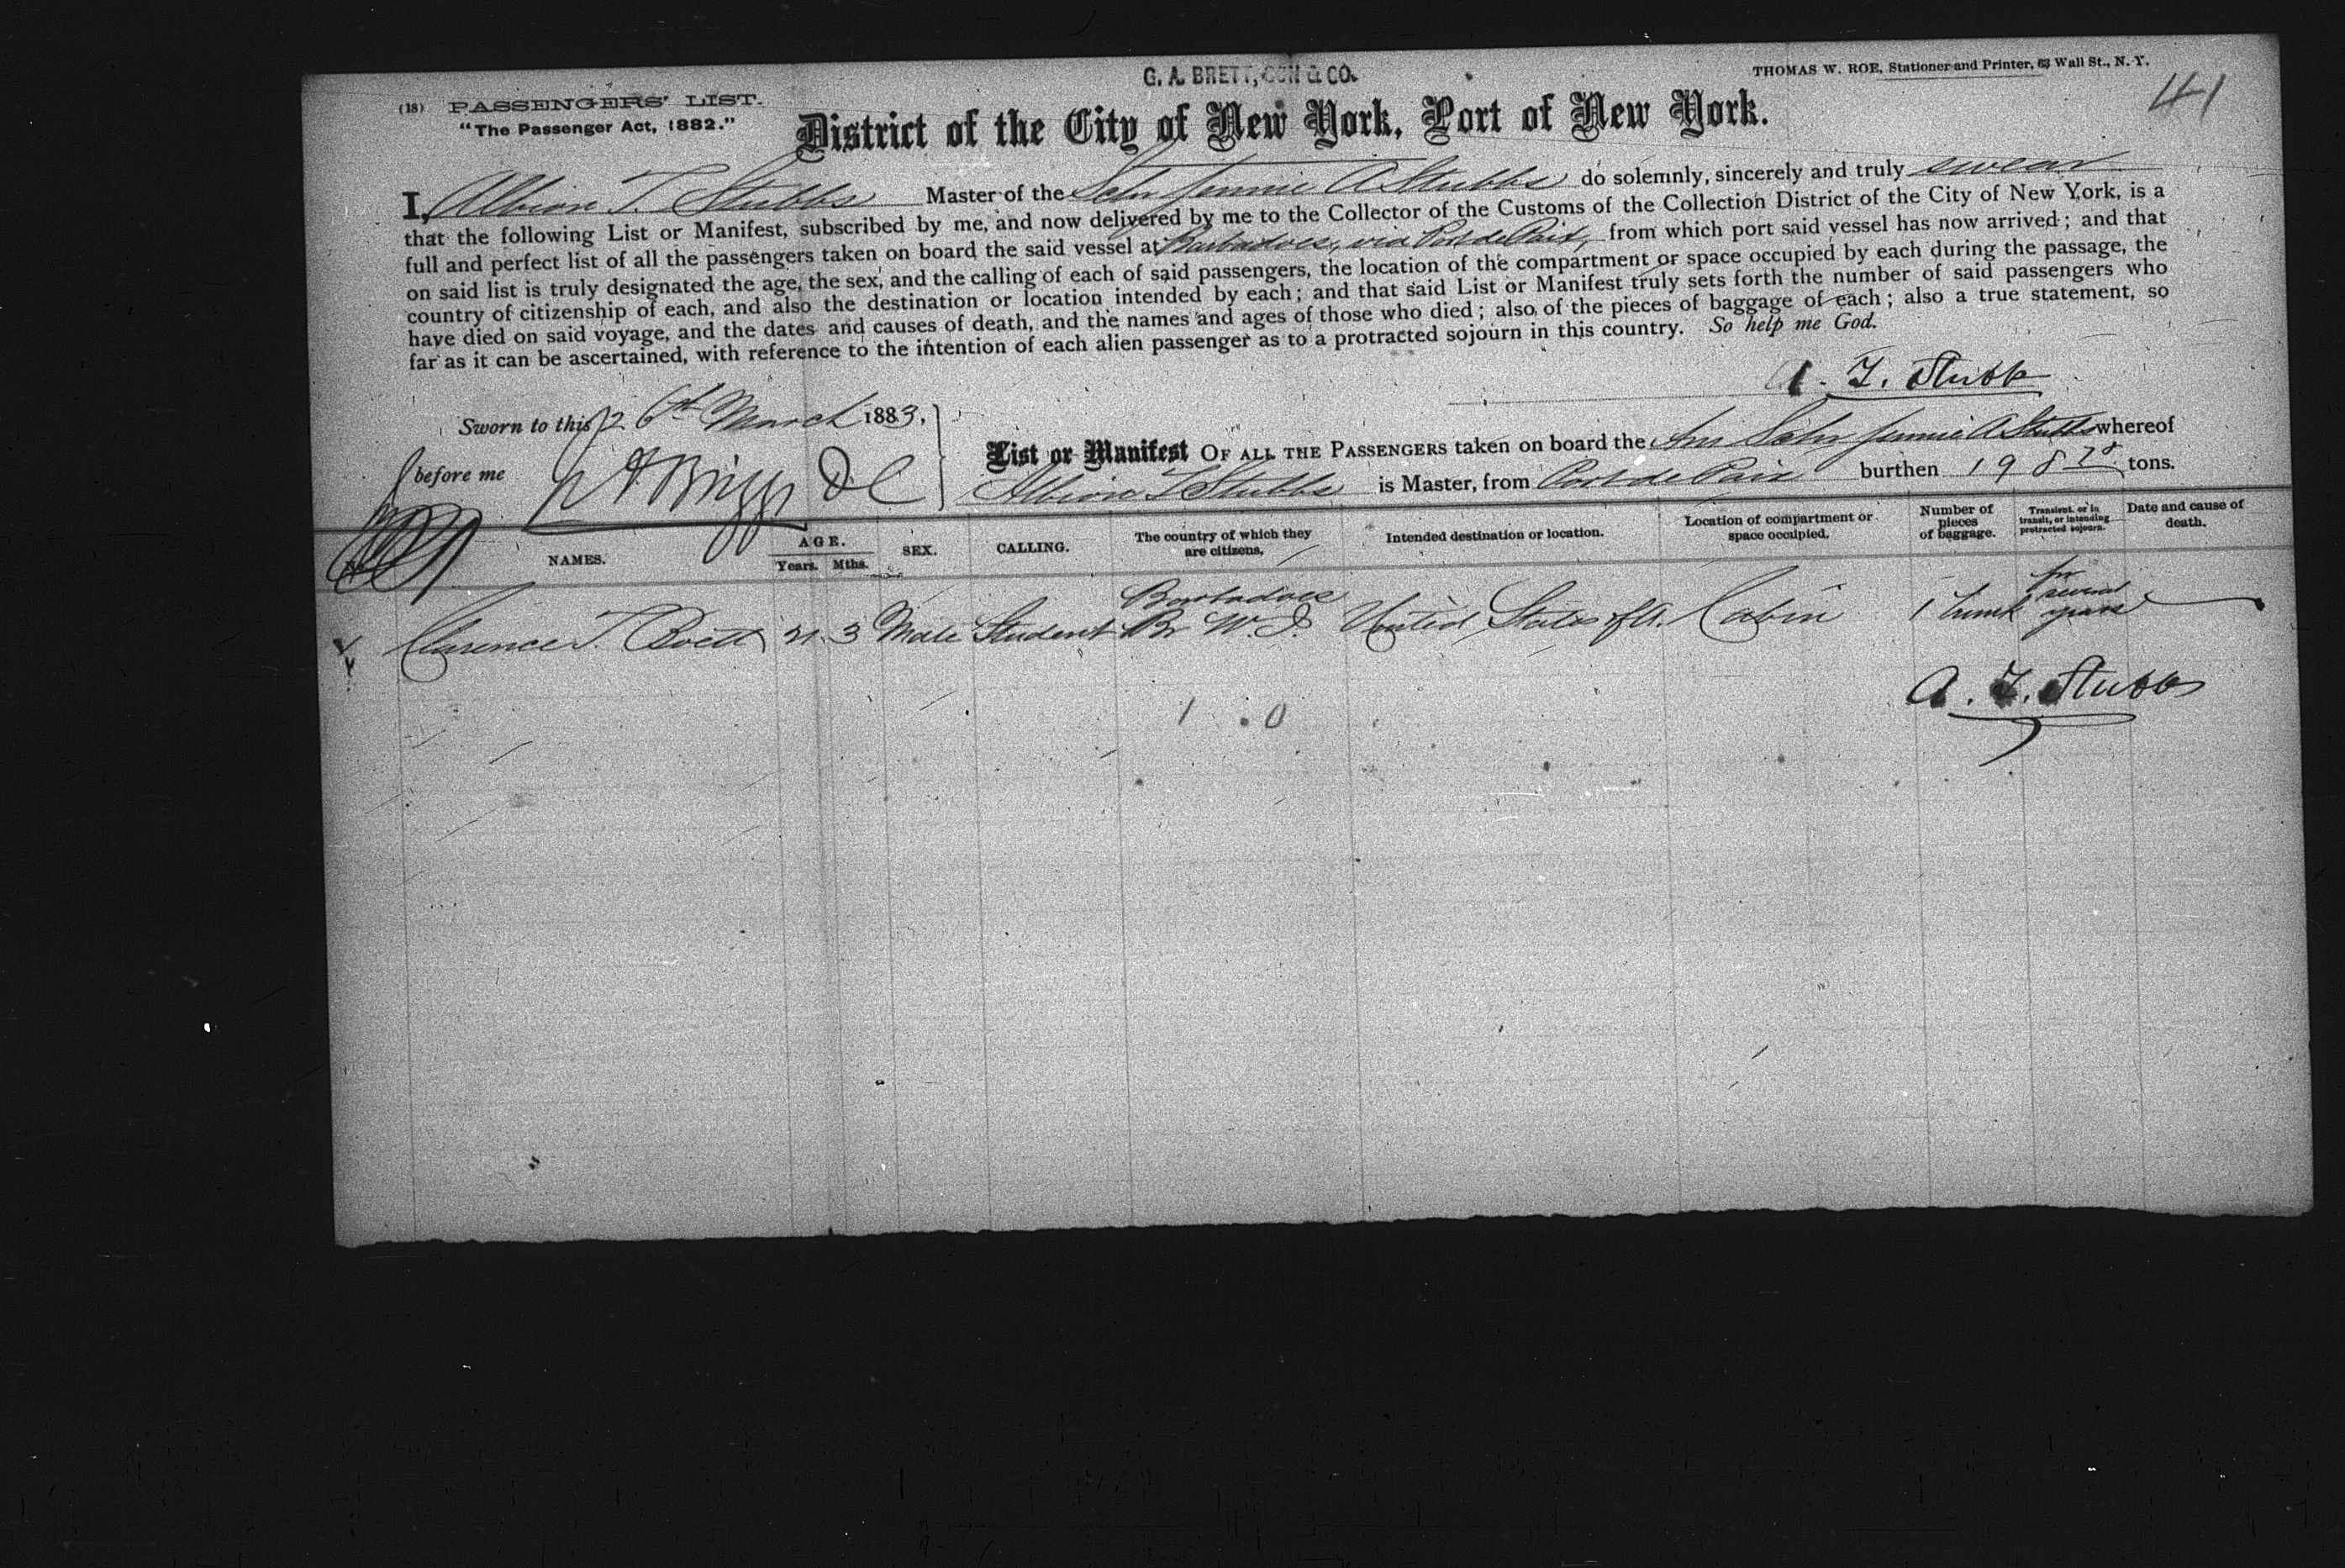 G. A. BRETT, SON & CO.
THOMAS W. ROE, Stationer and Printer, 63 Wall St., N. Y.
41
(18) PASSENGERS' LIST.
"The Passenger Act, 1882."
District of the City of New York, Port of New York.
I, Albion T. Stubbs Master of the Schr Jennie A Stubbs do solemnly, sincerely and truly swear
that the following List or Manifest, subscribed by me, and now delivered by me to the Collector of the Customs of the Collection District of the City of New York, is a
full and perfect list of all the passengers taken on board the said vessel at Barbadoes, via Port de Paix, from which port said vessel has now arrived; and that
on said list is truly designated the age, the sex, and the calling of each of said passengers, the location of the compartment or space occupied by each during the passage, the
country of citizenship of each, and also the destination or location intended by each; and that said List or Manifest truly sets forth the number of said passengers who
have died on said voyage, and the dates and causes of death, and the names and ages of those who died; also, of the pieces of baggage of each; also a true statement, so
far as it can be ascertained, with reference to the intention of each alien passenger as to a protracted sojourn in this country. So help me God.
A. T. Stubbs
Sworn to this 26th March 1883,
before me Briggs D C
List or Manifest OF ALL THE PASSENGERS taken on board the Am Schr Jennie A Stubbs whereof
Albion T Stubbs is Master, from Port de Paix burthen 198 tons.
NAMES. AGE. Years. Mths. SEX. CALLING. The country of which they are citizens. Intended destination or location. Location of compartment or space occupied. Number of pieces of baggage. Transient, or in transit, or intending protracted sojourn. Date and cause of death.
Clarence T. 21 3 Male Student Barbadoes Br W. I. United States of A. Cabin 1 trunk for several years
A. T. Stubbs
1 . 0